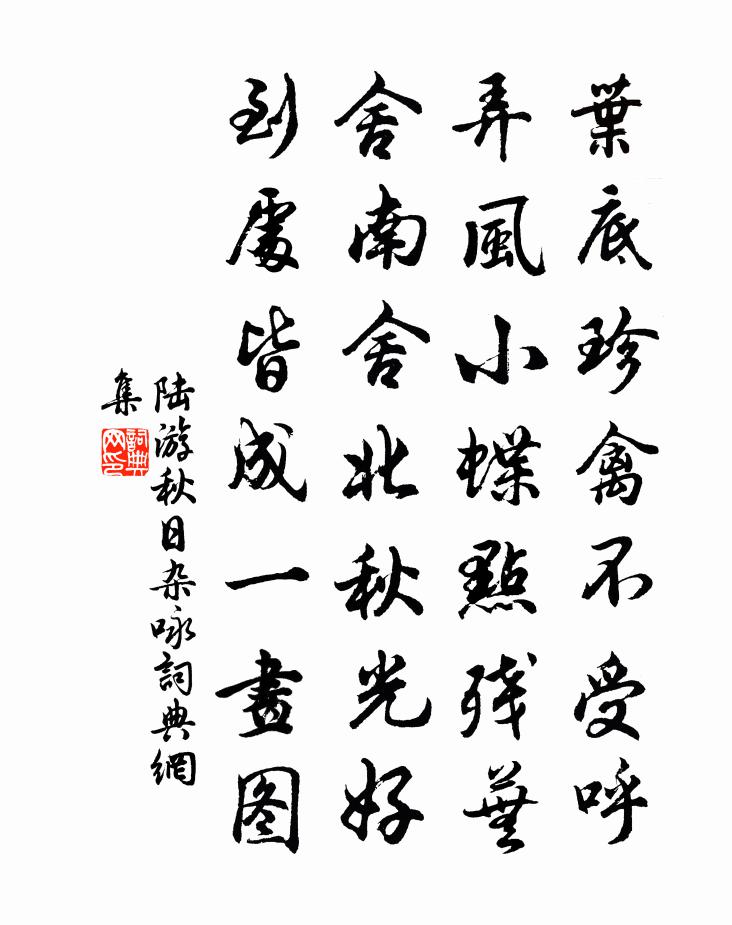 葉底珍禽不受呼
弄風小蝶點残蕪
舍南舍北秋光好
到處皆成一畫图
陆游秋日杂咏詞典網
集
詞典
网印